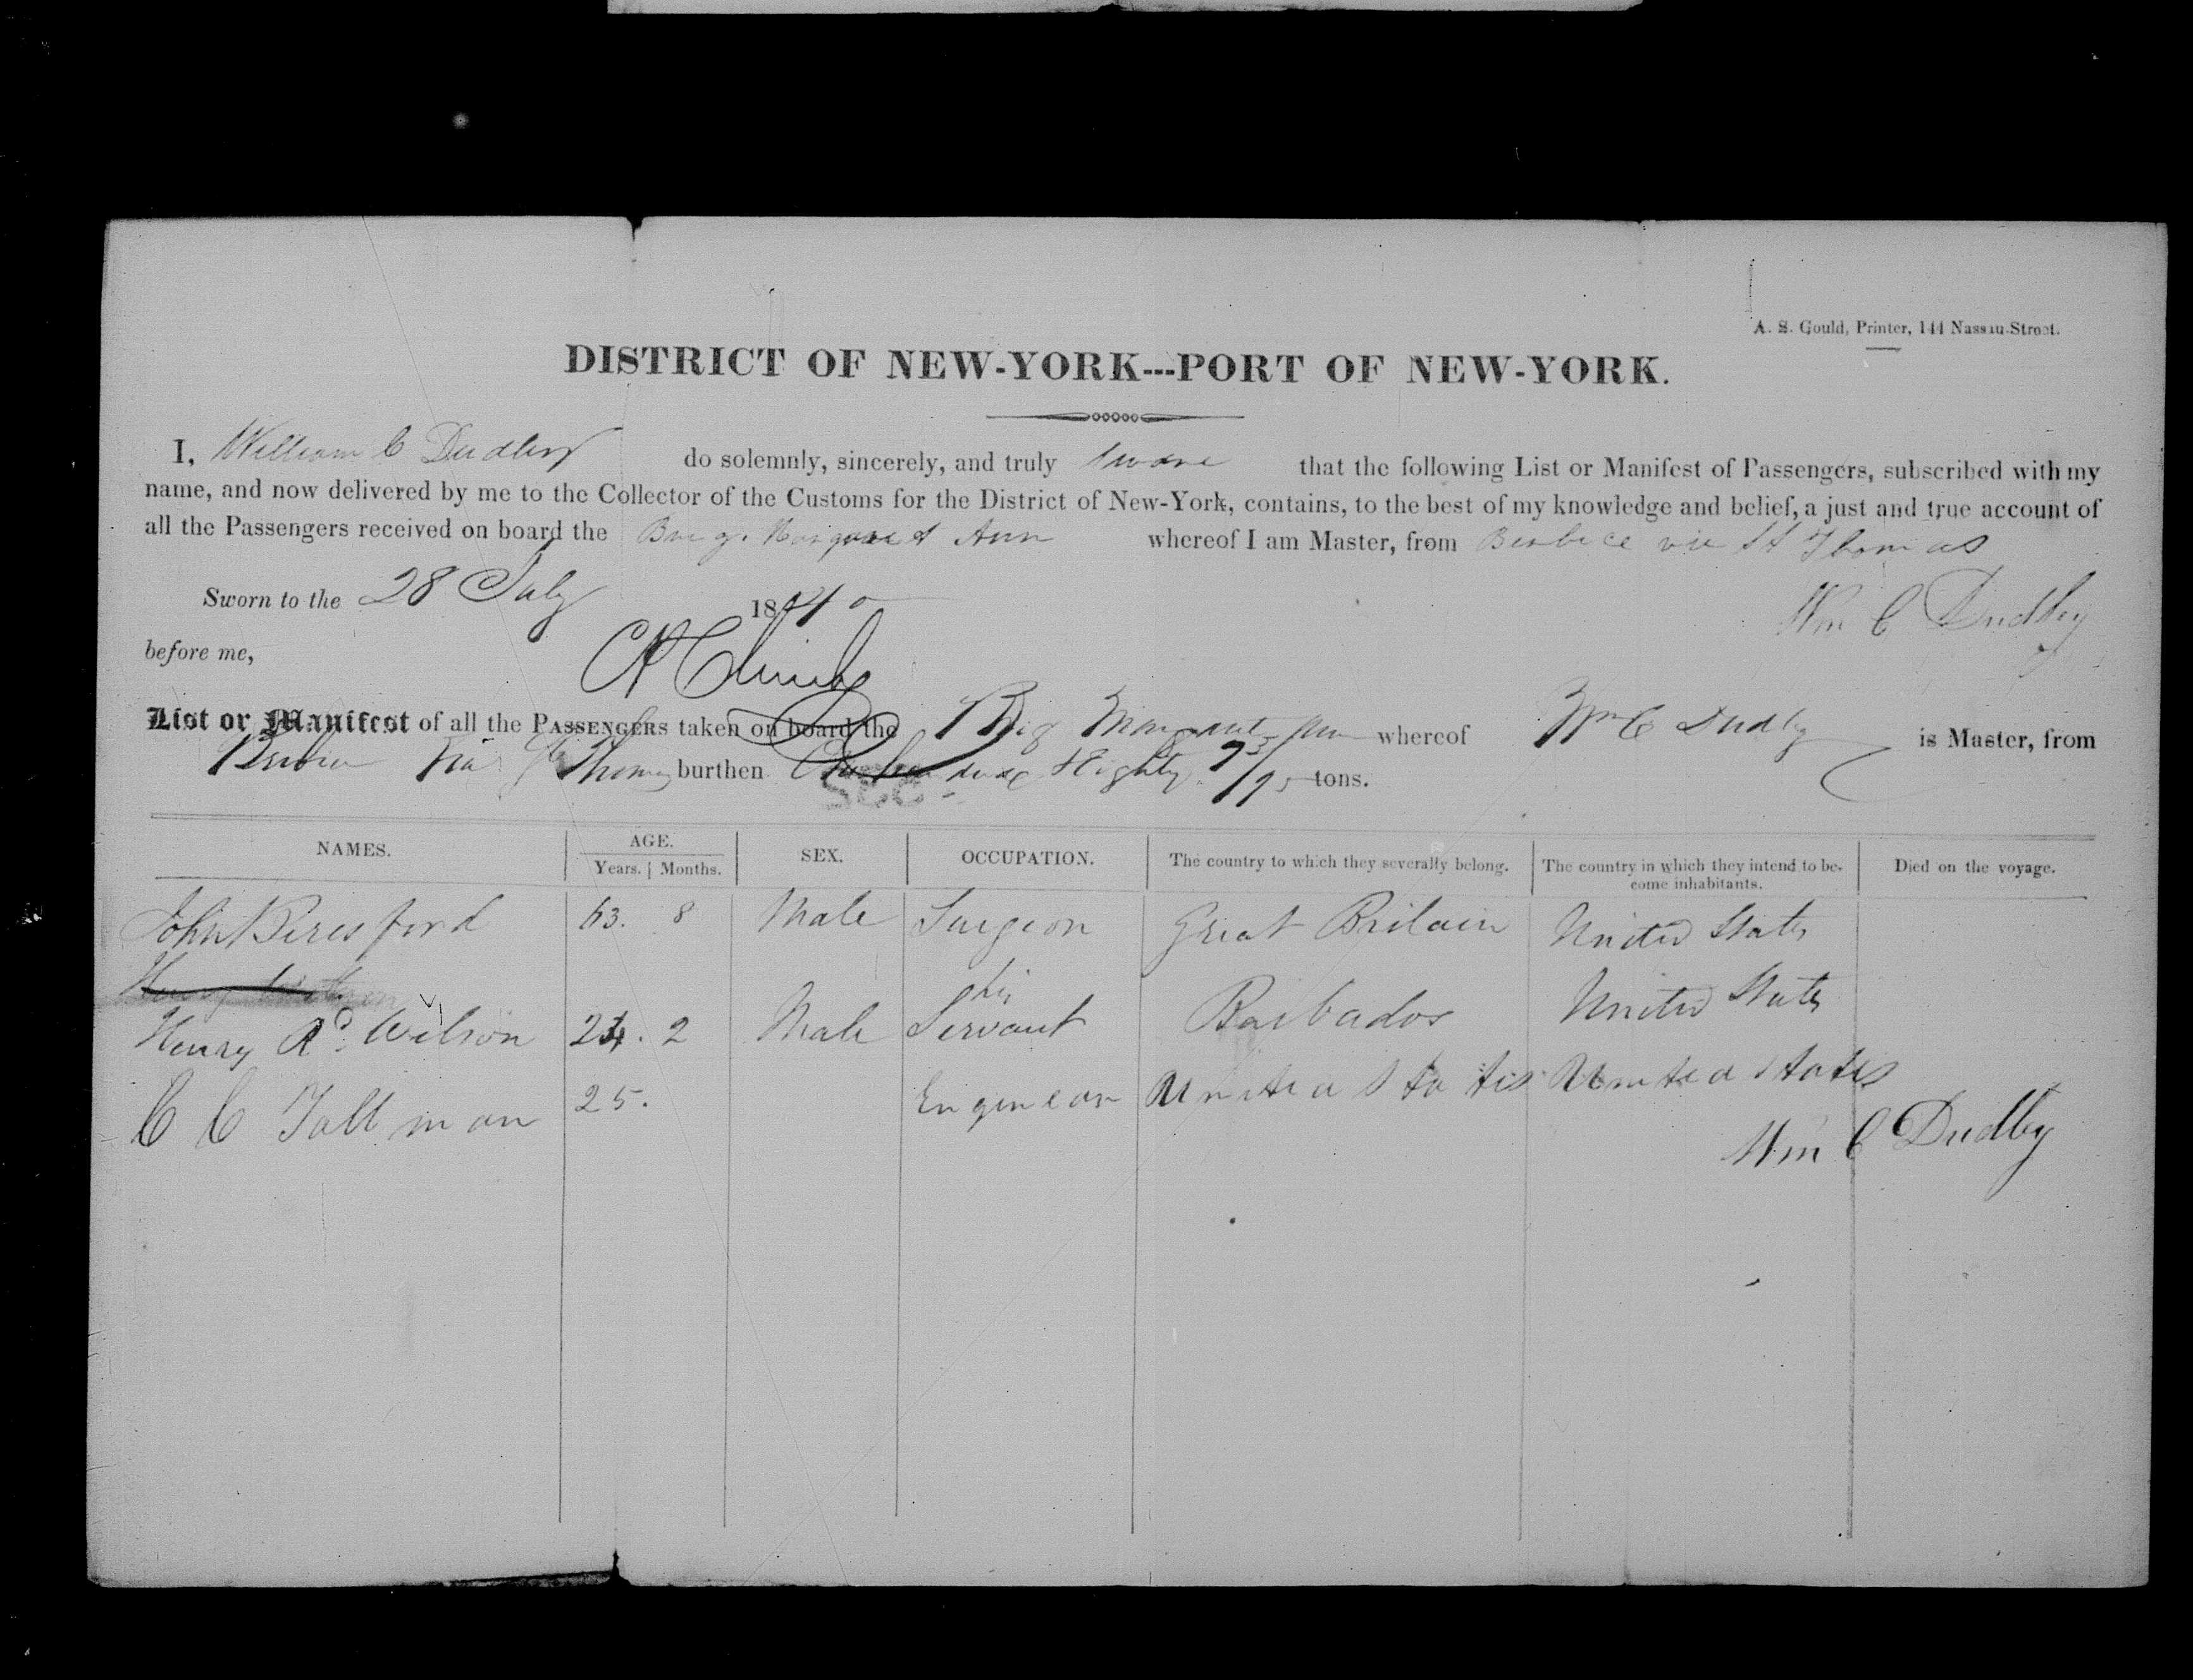 A. S. Gould, Printer, 144 Nassau-Street.
DISTRICT OF NEW-YORK---PORT OF NEW-YORK.
I, William C Dudley do solemnly, sincerely, and truly sware that the following List or Manifest of Passengers, subscribed with my
name, and now delivered by me to the Collector of the Customs for the District of New-York, contains, to the best of my knowledge and belief, a just and true account of
all the Passengers received on board the Brig. Margaret Ann whereof I am Master, from Berbice via St Thomas
Sworn to the 28 July 1840
Wm C Dudley
before me,
List or Manifest of all the PASSENGERS taken on board the Brig Margaret Ann whereof Wm C Dudley is Master, from
Berbice Via St Thomas burthen Eighty 73/95 tons.
NAMES. AGE. SEX. OCCUPATION. The country to which they severally belong. The country in which they intend to be-come inhabitants. Died on the voyage.
Years. Months.
John Beresford 63. 8 Male Surgeon Great Britain United States
Henry Wilson
Henry Rd. Wilson 24. 2 Male his Servant Barbados United States
C C Tallman 25. Enginear United States United States
Wm C Dudley